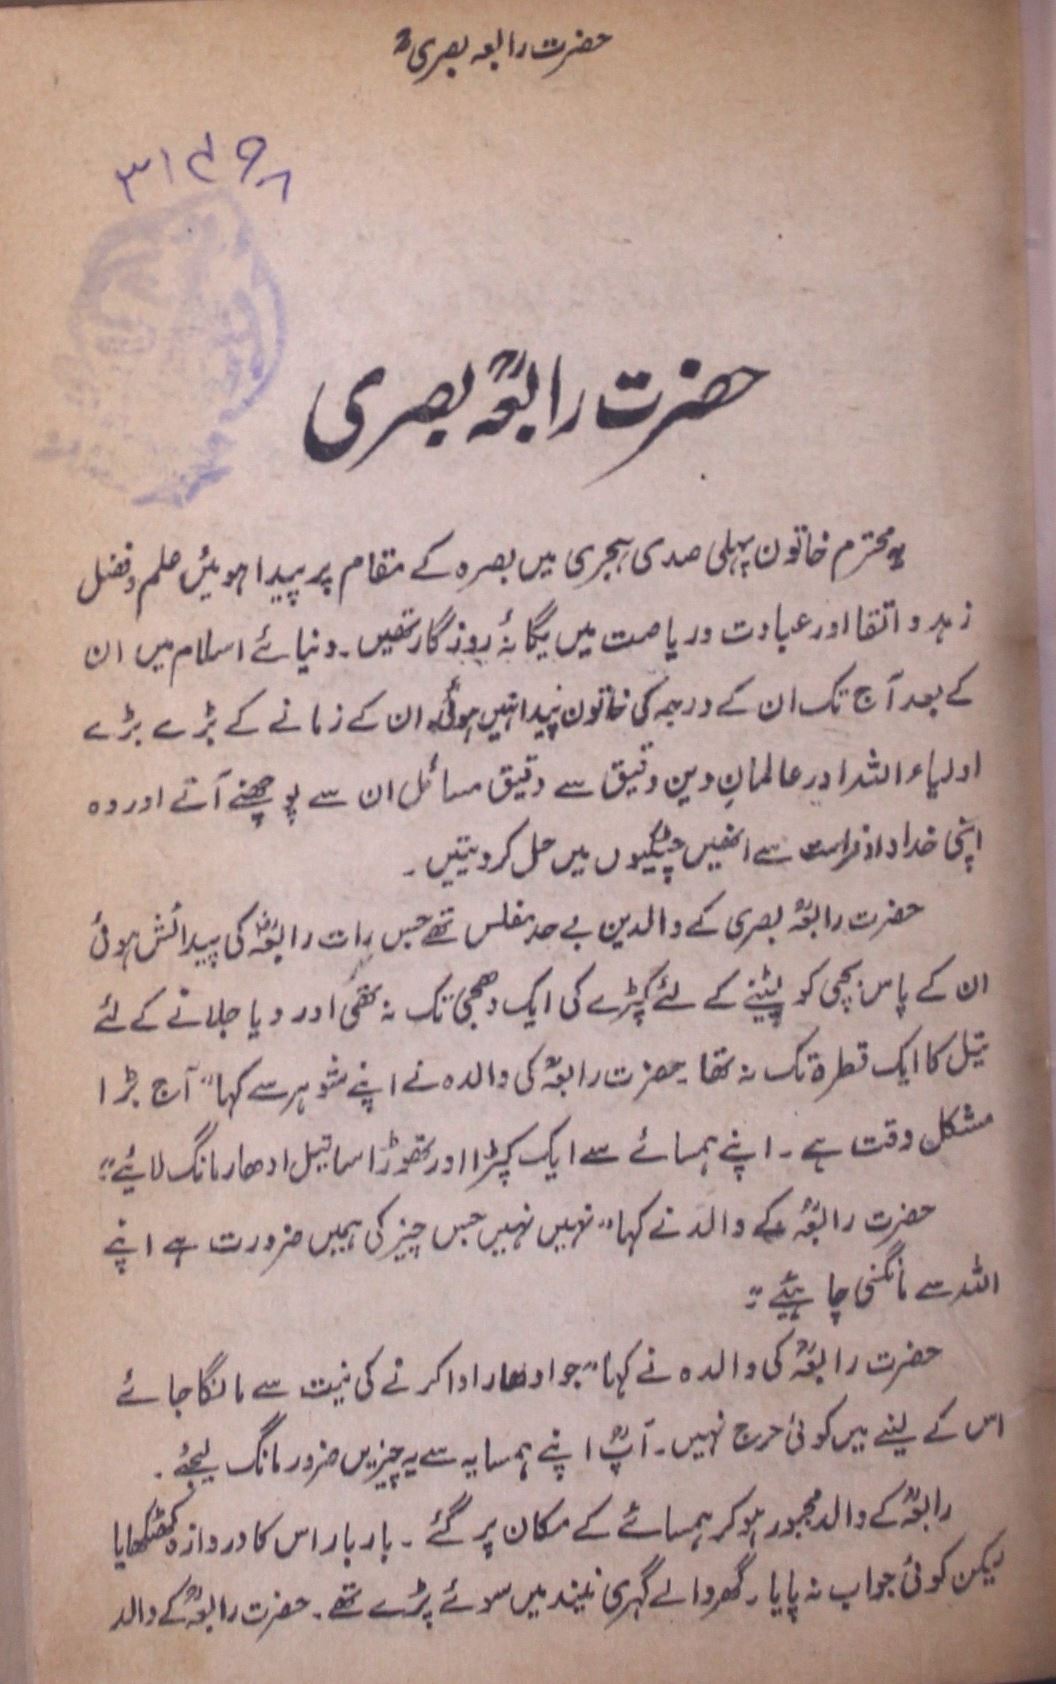 حضرت رابعہ بصریؒ
۳۱۷۹۸
حضرت رابعہؒ بصری
یہ محترم خاتون پہلی صدی ہجری میں بصرہ کے مقام پر پیدا ہوئیں علم و فضل
زہد و اتقا اور عبادت و ریاضت میں یگانۂ روزگار تھیں۔ دنیائے اسلام میں ان
کے بعد آج تک ان کے درجہ کی خاتون پیدا نہیں ہوئی۔ ان کے زمانے کے بڑے بڑے
اولیاء اللہ اور عالمانِ دین دقیق سے دقیق مسائل ان سے پوچھنے آتے اور وہ
اپنی خداداد فراست سے انھیں چٹکیوں میں حل کر دیتیں۔
حضرت رابعہؒ بصری کے والدین بے حد مفلس تھے جس رات رابعہؒ کی پیدائش ہوئی
ان کے پاس بچی کو لپٹنے کے لئے کپڑے کی ایک دھجی تک نہ تھی اور دیا جلانے کے لئے
تیل کا ایک قطرہ تک نہ تھا۔ حضرت رابعہؒ کی والدہ نے اپنے شوہر سے کہا "آج بڑا
مشکل وقت ہے۔ اپنے ہمسائے سے ایک کپڑا اور تھوڑا سا تیل ادھار مانگ لائیے"
حضرت رابعہؒ کے والد نے کہا "نہیں نہیں جس چیز کی ہمیں ضرورت ہے اپنے
اللہ سے مانگنی چاہئیے"
حضرت رابعہؒ کی والدہ نے کہا "جو ادھار ادا کرنے کی نیت سے مانگا جائے
اس کے لینے میں کوئی حرج نہیں۔ آپؒ اپنے ہمسایہ سے یہ چیزیں ضرور مانگ لیجئے۔
رابعہؒ کے والد مجبور ہو کر ہمسائے کے مکان پر گئے۔ بار بار اس کا دروازہ کھٹکھٹایا
لیکن کوئی جواب نہ پایا۔ گھر والے گہری نیند میں سوئے پڑے تھے۔ حضرت رابعہؒ کے والد